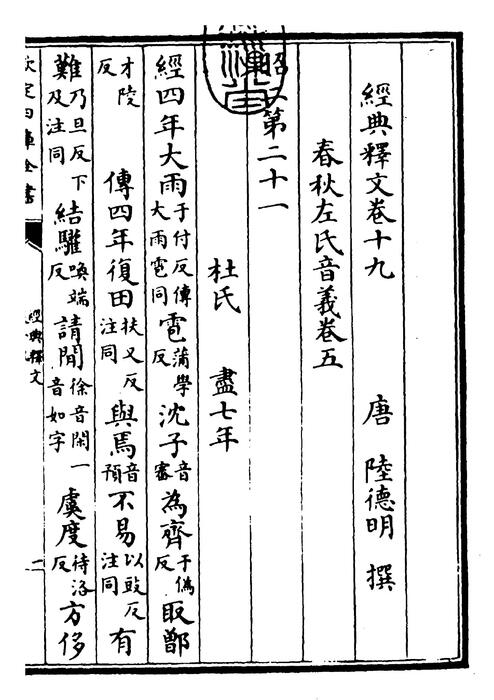 經典釋文卷十九 唐 陸德明 撰
春秋左氏音義卷五
昭二第二十一
杜氏 盡七年
經四年大雨于付反傳大雨雹同雹蒲學反沈子音審為齊于偽反取鄫
才陵反 傳四年復田扶又反注同與焉音預不易以豉反注同有
難乃旦反下及注同結驩喚端反請閒徐音閑一音如字虞度待洛反方侈
欽定四庫全書
經典釋文